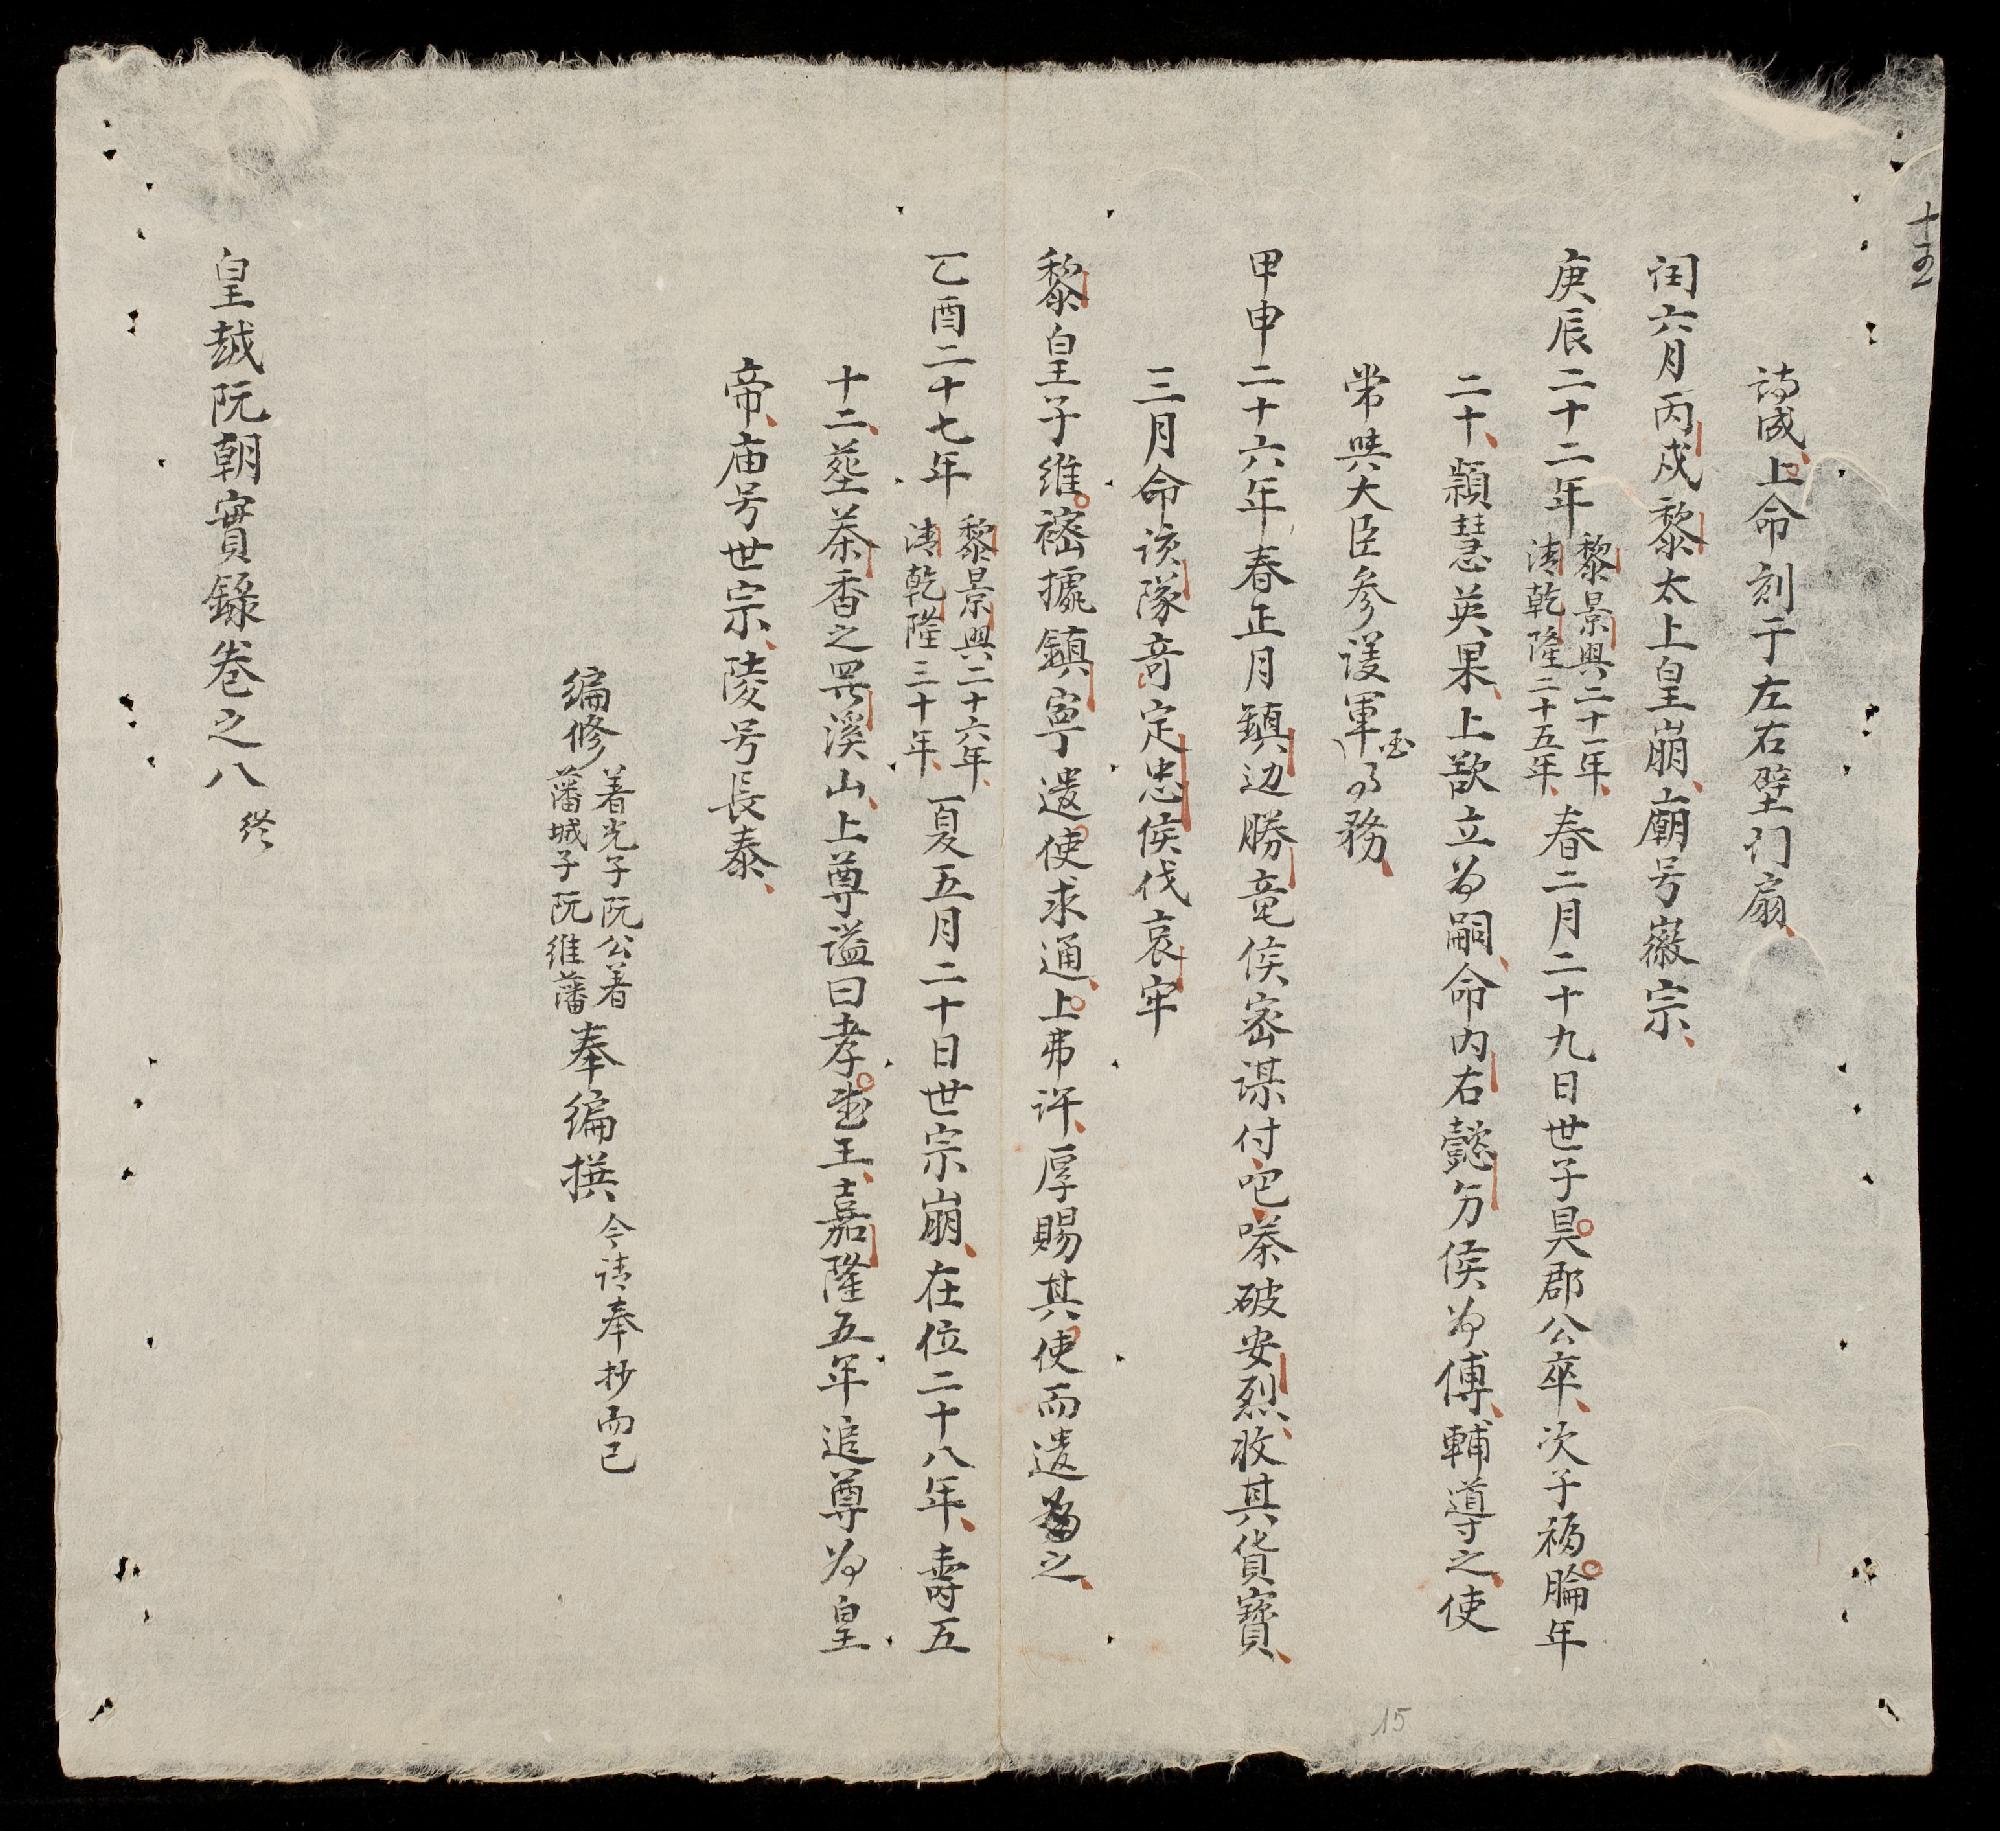 十五
詩成上命刻于左右壁门扇
闰六月丙戌黎太上皇崩廟号徽宗
庚辰二十二年黎景興二十一年清乾隆二十五年春二月二十九日世子昊郡公卒次子福腀年
二十穎慧英果上欲立为嗣命内右懿分侯为傅輔導之使
常與大臣参谟軍国务務
甲申二十六年春正月鎮边勝竜侯密谋付吧嗏破安烈收其貨寶
三月命该隊奇定忠侯伐哀牢
黎皇子維𥛭據鎮寧遣使求通上弗许厚賜其使而遣之
乙酉二十七年黎景興二十六年清乾隆三十年夏五月二十日世宗崩在位二十八年壽五
十二塟茶香之罢溪山上尊谥曰孝武王嘉隆五年追尊为皇
帝庙号世宗陵号長泰
編修著光子阮公著藩城子阮維藩奉編撰今请奉抄而已
皇越阮朝實録巻之八终
15